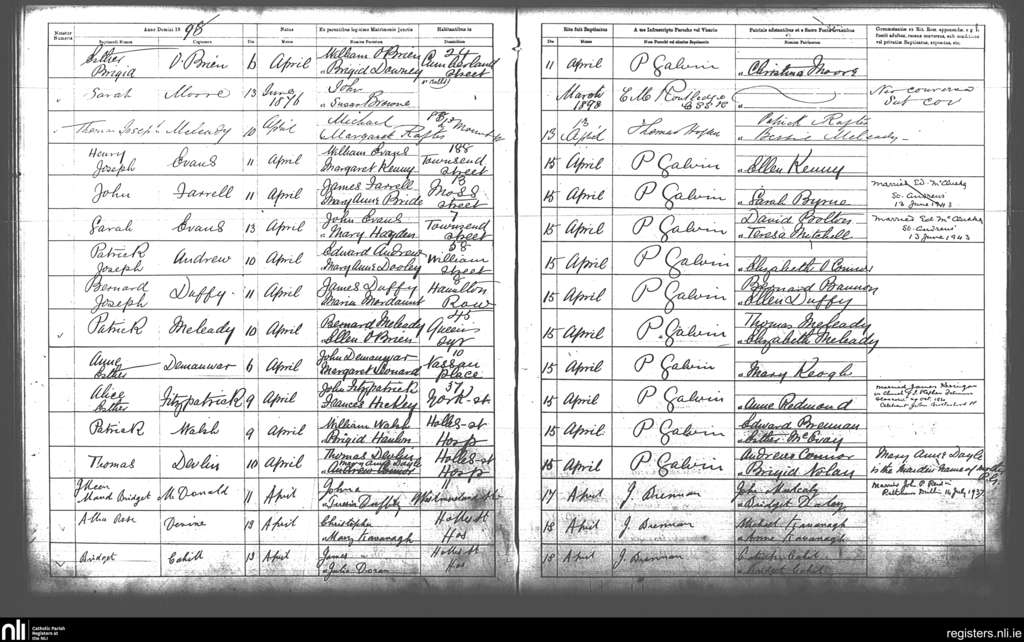 Anno Domini 1898
Numerus Numeri
Baptizati Nomen
Cognomen
Die
Natus Mense
Ex parentibus legitimo Matrimonio Junctis Nomina Parentum
Habitantibus in Domicilium
Esther Brigid O'Brien 6 April William O'Brien & Brigid Downey 24 Cumberland Street
Sarah Moore 13 June 1876 John & Susan Browne
Thomas Joseph Meleady 10 April Michael Margaret Rafter
Henry Joseph Evans 11 April William Evans Margaret Kenny 188 Townsend Street
John Farrell 11 April James Farrell Mary Anne Pride Moss Street
Sarah Evans 13 April John Evans & Mary Hayden 7 Townsend Street
Patrick Joseph Andrew 10 April Edward Andrew Mary Anne Dooley 58 William Street
Bernard Joseph Duffy 11 April James Duffy Maria Mordaunt 8 Hamilton Row
Patrick Meleady 10 April Bernard Meleady Ellen O'Brien 45 Queens Sqr
Anne Esther Demanwar 6 April John Demanwar Margaret Leonard 10 Nassau Place
Alice Esther Fitzpatrick 9 April John Fitzpatrick Frances Hickey York-st
Patrick Walsh 9 April William Walsh Brigid Hanlon Holles-st Hosp
Thomas Devlin 10 April Thomas Devlin Mary Anne Dayle Andrew Connor Holles-st Hosp
Maud Bridget McDonald 11 April John & 11
Rose Devine 13 April Christopher & Mary Kavanagh Holles St Hos
Bridget Cahill 13 April James & Julia Doran Holles St Hos
Rite fuit Baptizatus
Die Mense
A me Infrascripto Parocho vel Vicario
Nomen Parochi vel alterius Baptizantis
Nomina Patrinorum
11 April P Galvin & Christina Moore
March 1898 C.M. Routledge C.SS.R. Neo conversa Sub con
13 April Thomas Patrick Rafter Bessie Meleady
15 April P Galvin & Ellen Kenny
15 April P Galvin & Sarah Byrne Married Ed McCluskey St. Andrews 13 June 1943
15 April P Galvin David Teresa Mitchell Married Ed McCluskey St. Andrews 13 June 1943
15 April P Galvin & Elizabeth O'Connor
15 April P Galvin Bernard Brannon & Ellen Duffy
15 April P. Galvin Thomas Meleady & Elizabeth Meleady
15 April P Galvin & Mary Keogh
15 April P Galvin & Anne Redmond
15 April P Galvin Edward Brennan & Esther McEvoy
15 April P Galvin Andrew Connor & Brigid Nolan Mary Anne Dayle is the maiden name of mother P.G.
17 April J. Brennan John & Bridget Married John P 14 July 1937
18 April J. Brennan Michael Kavanagh & Anne Kavanagh
18 April J. Brennan Cahill & Bridget Cahill
nli Catholic Parish Registers at the NLI
registers.nli.ie